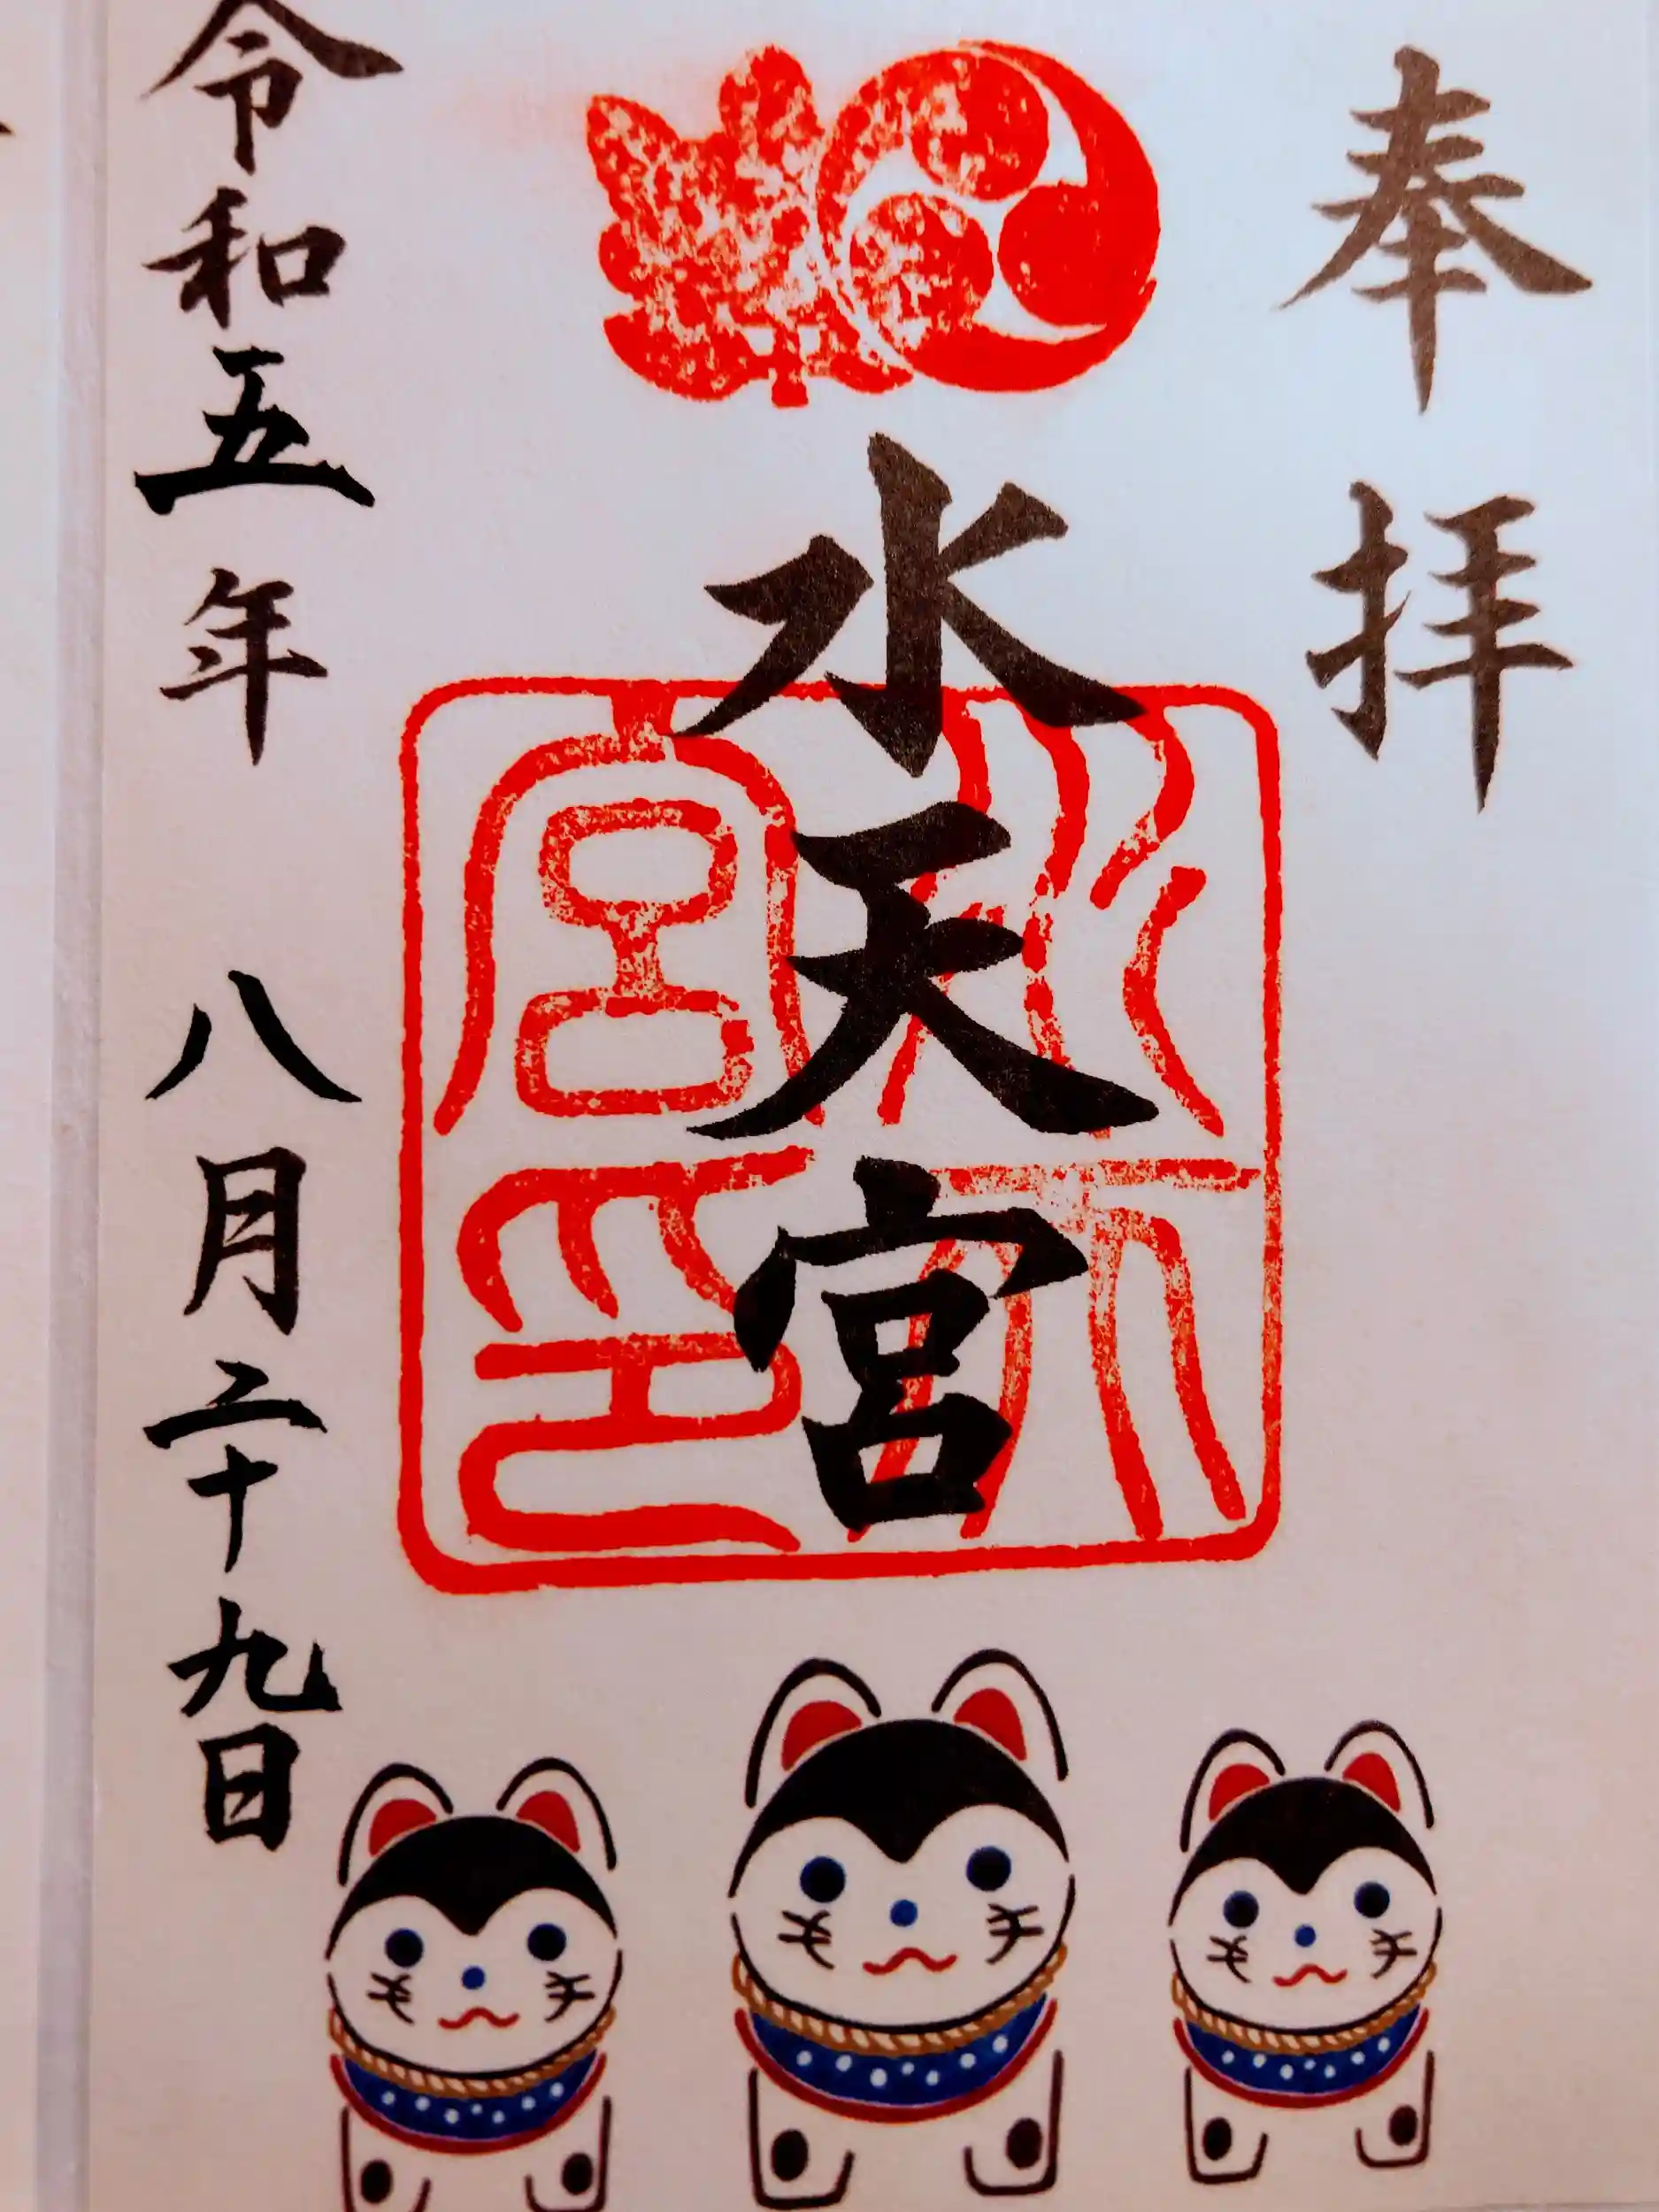 奉拝
水天宮
水天宮印
令和五年 八月二十九日